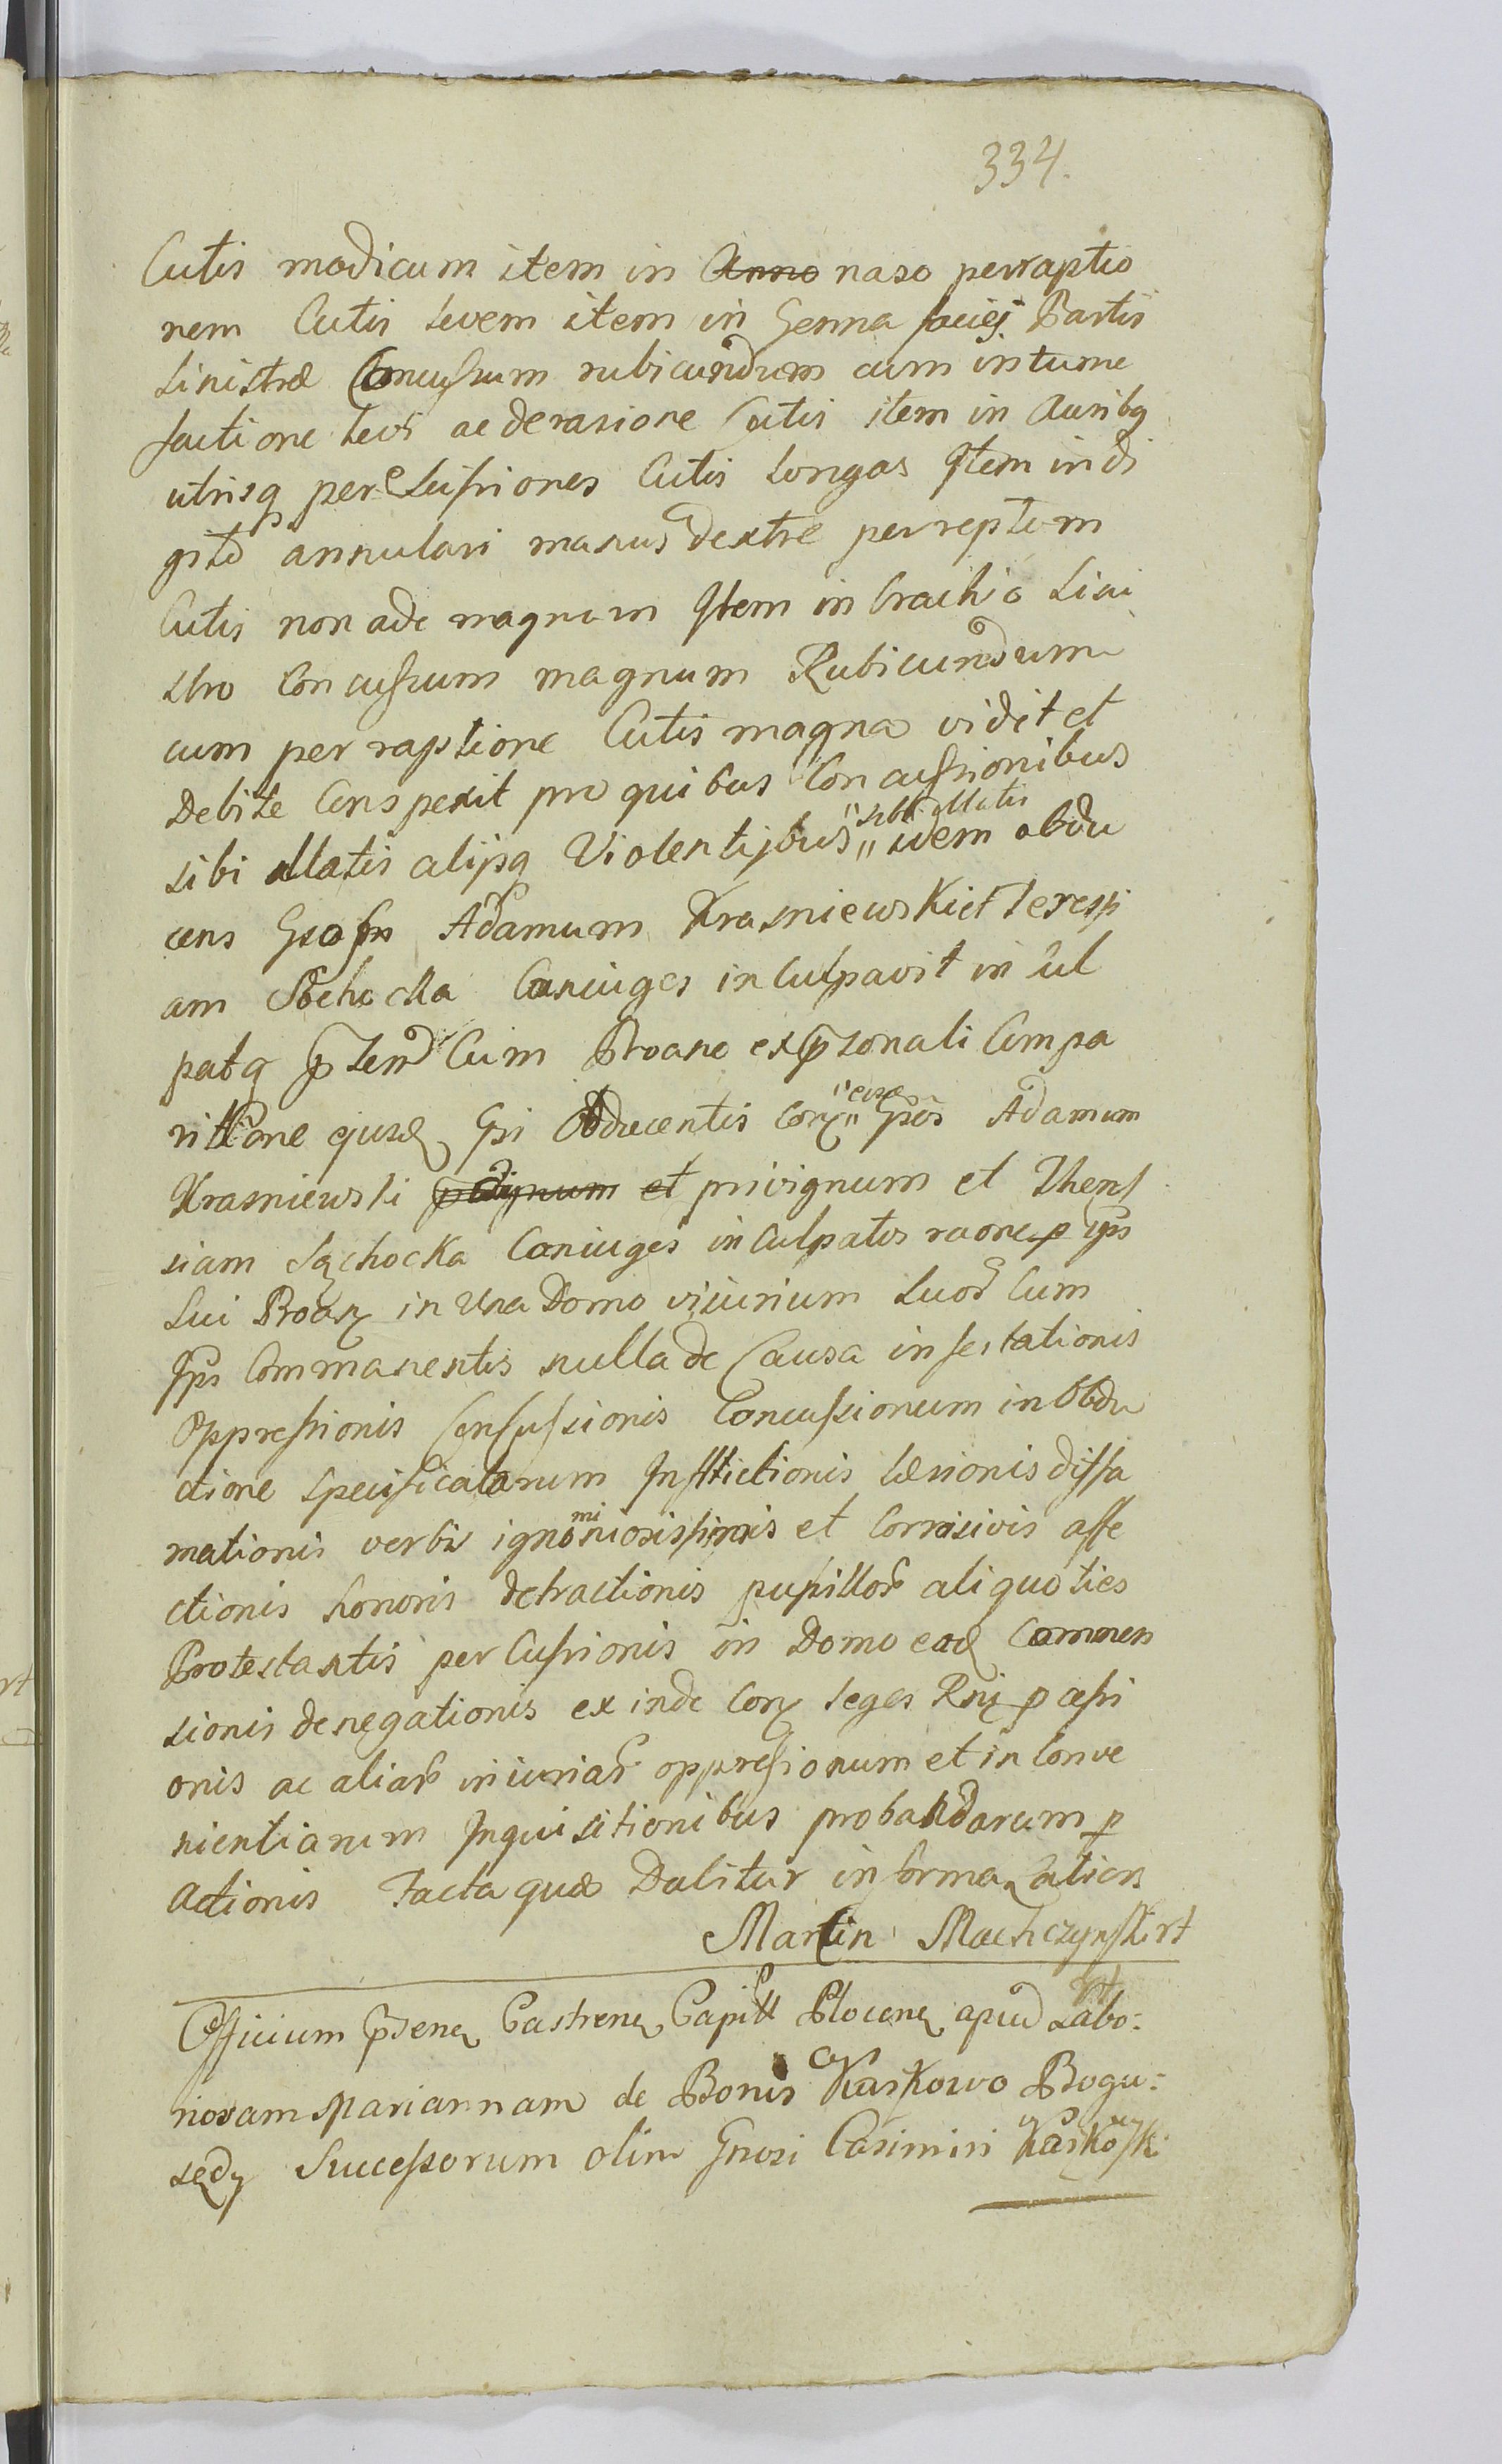 334.
Cutis modicum item in Anno naso perraptio
nem Cutis levem item in Genna faciej Partis
sinistræ Concussum rubicundum cum intume
factione levi ac derasione Cutis item in Auribq
utrisq percussiones Cutis longas Item in di
gito annulari manus dextre perreptum
Cutis non ade magnum Item in brachio sini
stro Concussum magnum Rubicundum
cum perraptione Cutis magna vidit et
Debite Conspexit pro quibus Concussionibus
sibi illatis alijsq Violentijbus "sibi illatis" idem obdu
cens Adamum Krasniewski et Teressi
am Sochocka Coniuges inculpavit in cul
patq Cum Proane ex personali Compa
ritione ejusd Gsi Obducentis Cor "eise" Gsos Adamum
Krasniewski et privignum et Theres
siam Sąchocka Coniuges inculpatos raone p ips
sui in Una Domo vicinium suor Cum
Ips Commanentis nulla de Causa infestationis
Oppressionis Confussionis Concussionum in Obdu
ctione specificatarum Inflictionis læsionis diffa
mationis verbis ignominiosissimis et Corrosivis affe
ctionis honoris detractionis pupillor aliquoties
Protestantis percussionis in Domo ead Commen
sionis denegationis ex inde leges Rni p cessi
onis ac aliar iniuriar oppressionum et in Conve
nientiarum Inquisitionibus probandarum p
actionis Facta quæ Dabitur in forma
Martin Machczynski rt
Officium Castren Capitl Plocen apud Labo:
novam Mariannam de Bonis Kaskowo Bogu:
sędy Successorum olim Gnosi Casimiri Kaskosk